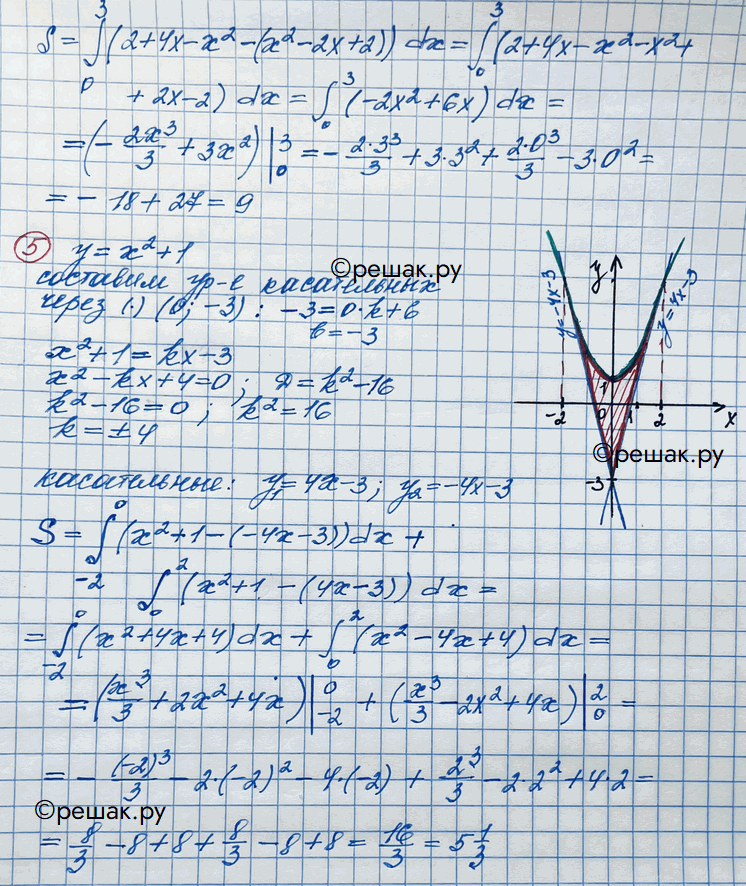 S = ∫₀³ (2+4x-x²-(x²-2x+2)) dx = ∫₀³ (2+4x-x²-x²+
+2x-2) dx = ∫₀³ (-2x²+6x) dx =
= (-2x³/3 + 3x²) |₀³ = -2·3³/3 + 3·3² + 2·0³/3 - 3·0² =
= -18+27 = 9
5 y = x²+1
©решак.ру
составим ур-е касательных
через (·) (0; -3): -3 = 0·k+b
b = -3
x²+1 = kx-3
x²-kx+4=0; D = k²-16
k²-16=0; k²=16
k = ±4
y
y=-4x-3
y=4x-3
1
-2 0 1 2 x
©решак.ру
-3
касательные: y₁ = 4x-3; y₂ = -4x-3
S = ∫₋₂⁰ (x²+1-(-4x-3)) dx +
∫₀² (x²+1-(4x-3)) dx =
= ∫₋₂⁰ (x²+4x+4) dx + ∫₀² (x²-4x+4) dx =
= (x³/3 + 2x² + 4x) |₋₂⁰ + (x³/3 - 2x² + 4x) |₀² =
= -(-2)³/3 - 2·(-2)² - 4·(-2) + 2³/3 - 2·2² + 4·2 =
©решак.ру
= 8/3 - 8 + 8 + 8/3 - 8 + 8 = 16/3 = 5 1/3